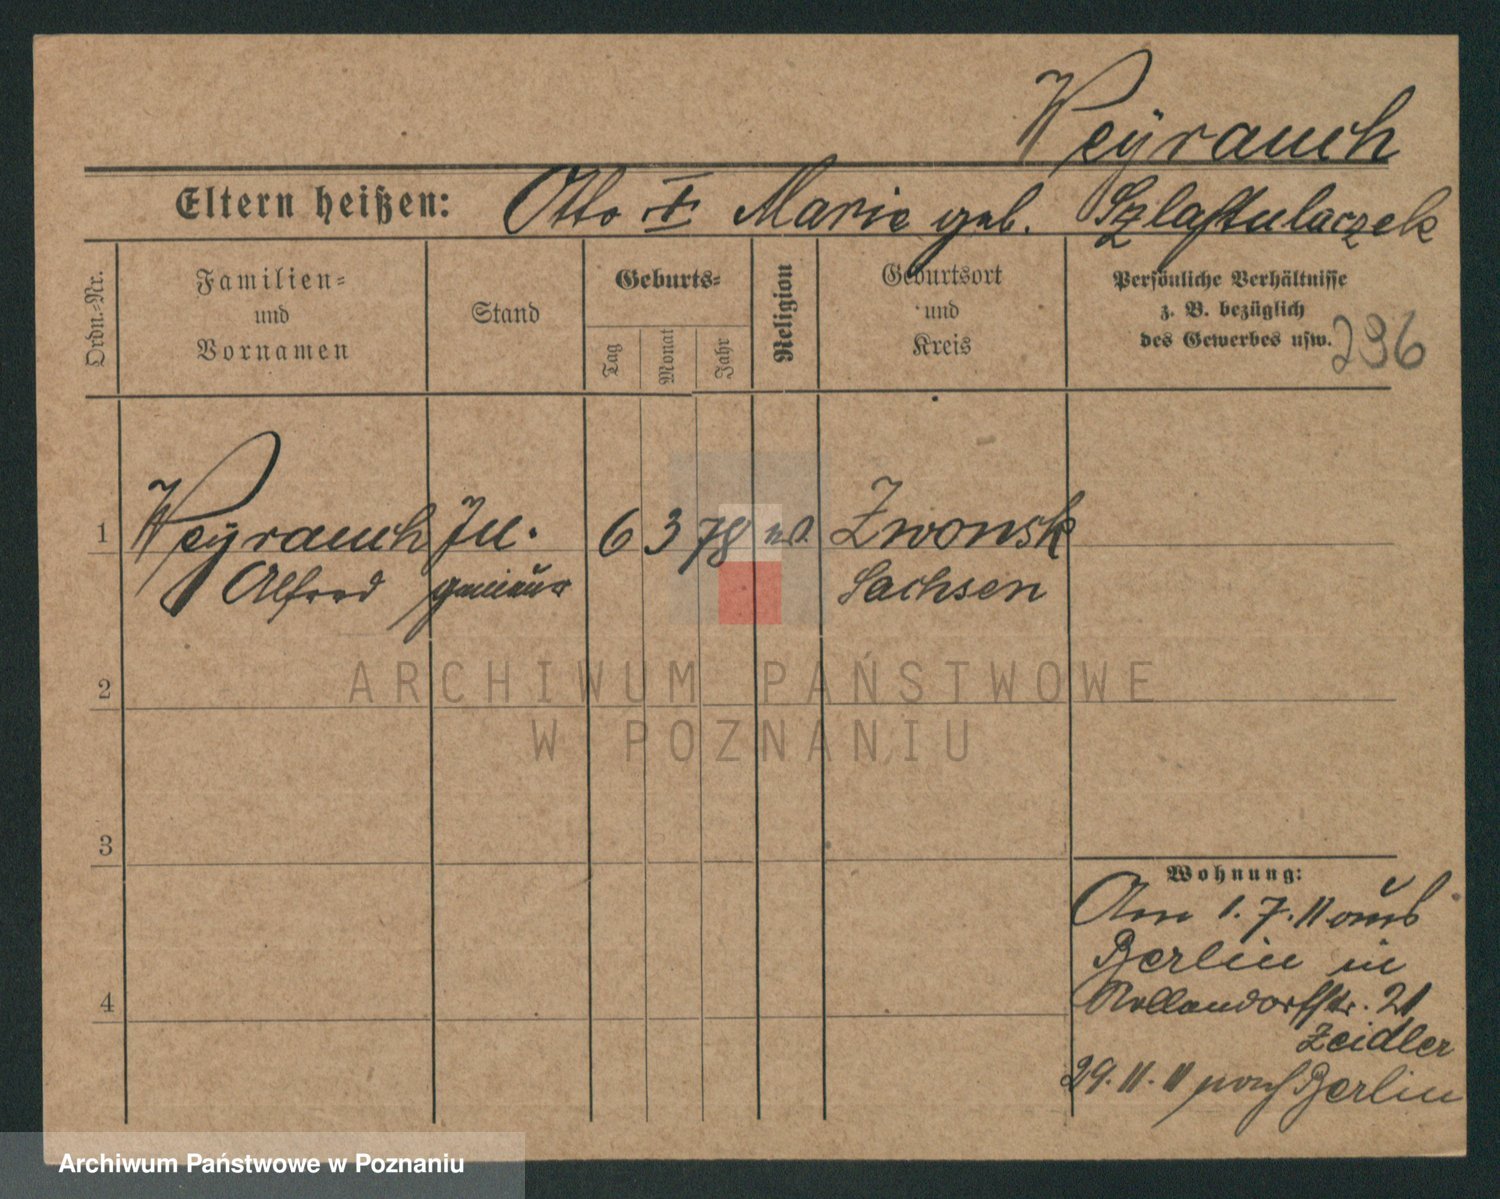 Weÿrauch
Eltern heißen: Otto Marie geb. Szlastulaczek
Ordn.-Nr.
Familien-
und
Vornamen
Stand
Geburts-
Tag
Monat
Jahr
Religion
Geburtsort
und
Kreis
Persönliche Verhältnisse
z. B. bezüglich
des Gewerbes usw.
236
1 Weÿrauch In. 6 3 78 Zwonsk
Alfred genieur Sachsen
2
3
4
Wohnung:
Am 1.7.11 aus
Berlin in
Nollendorfstr. 21
Zeidler
29.11.11 nach Berlin
ARCHIWUM PAŃSTWOWE
W POZNANIU
Archiwum Państwowe w Poznaniu